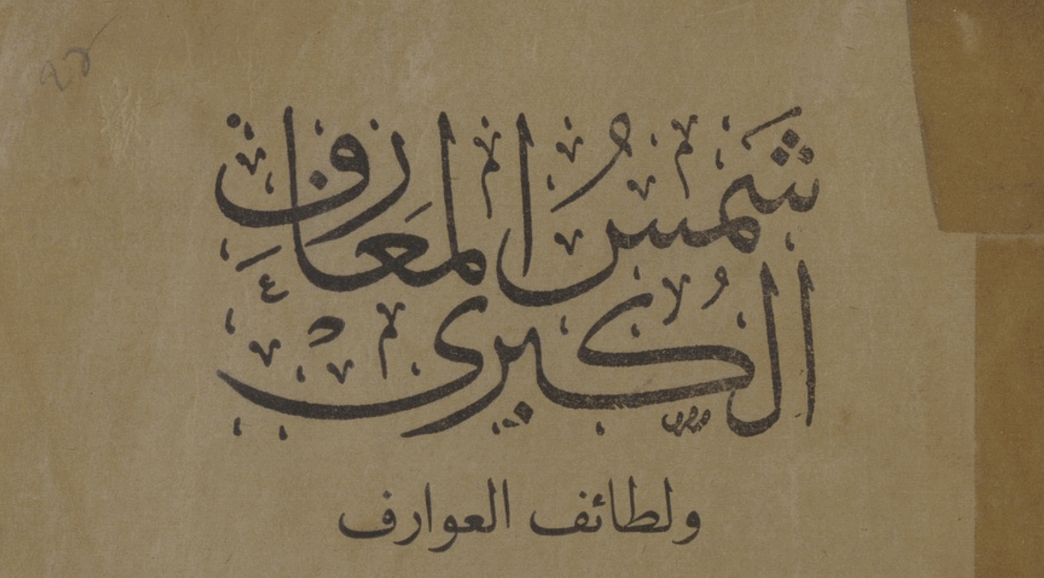 شمسُ المعارفِ
الكبرى
ولطائف العوارف